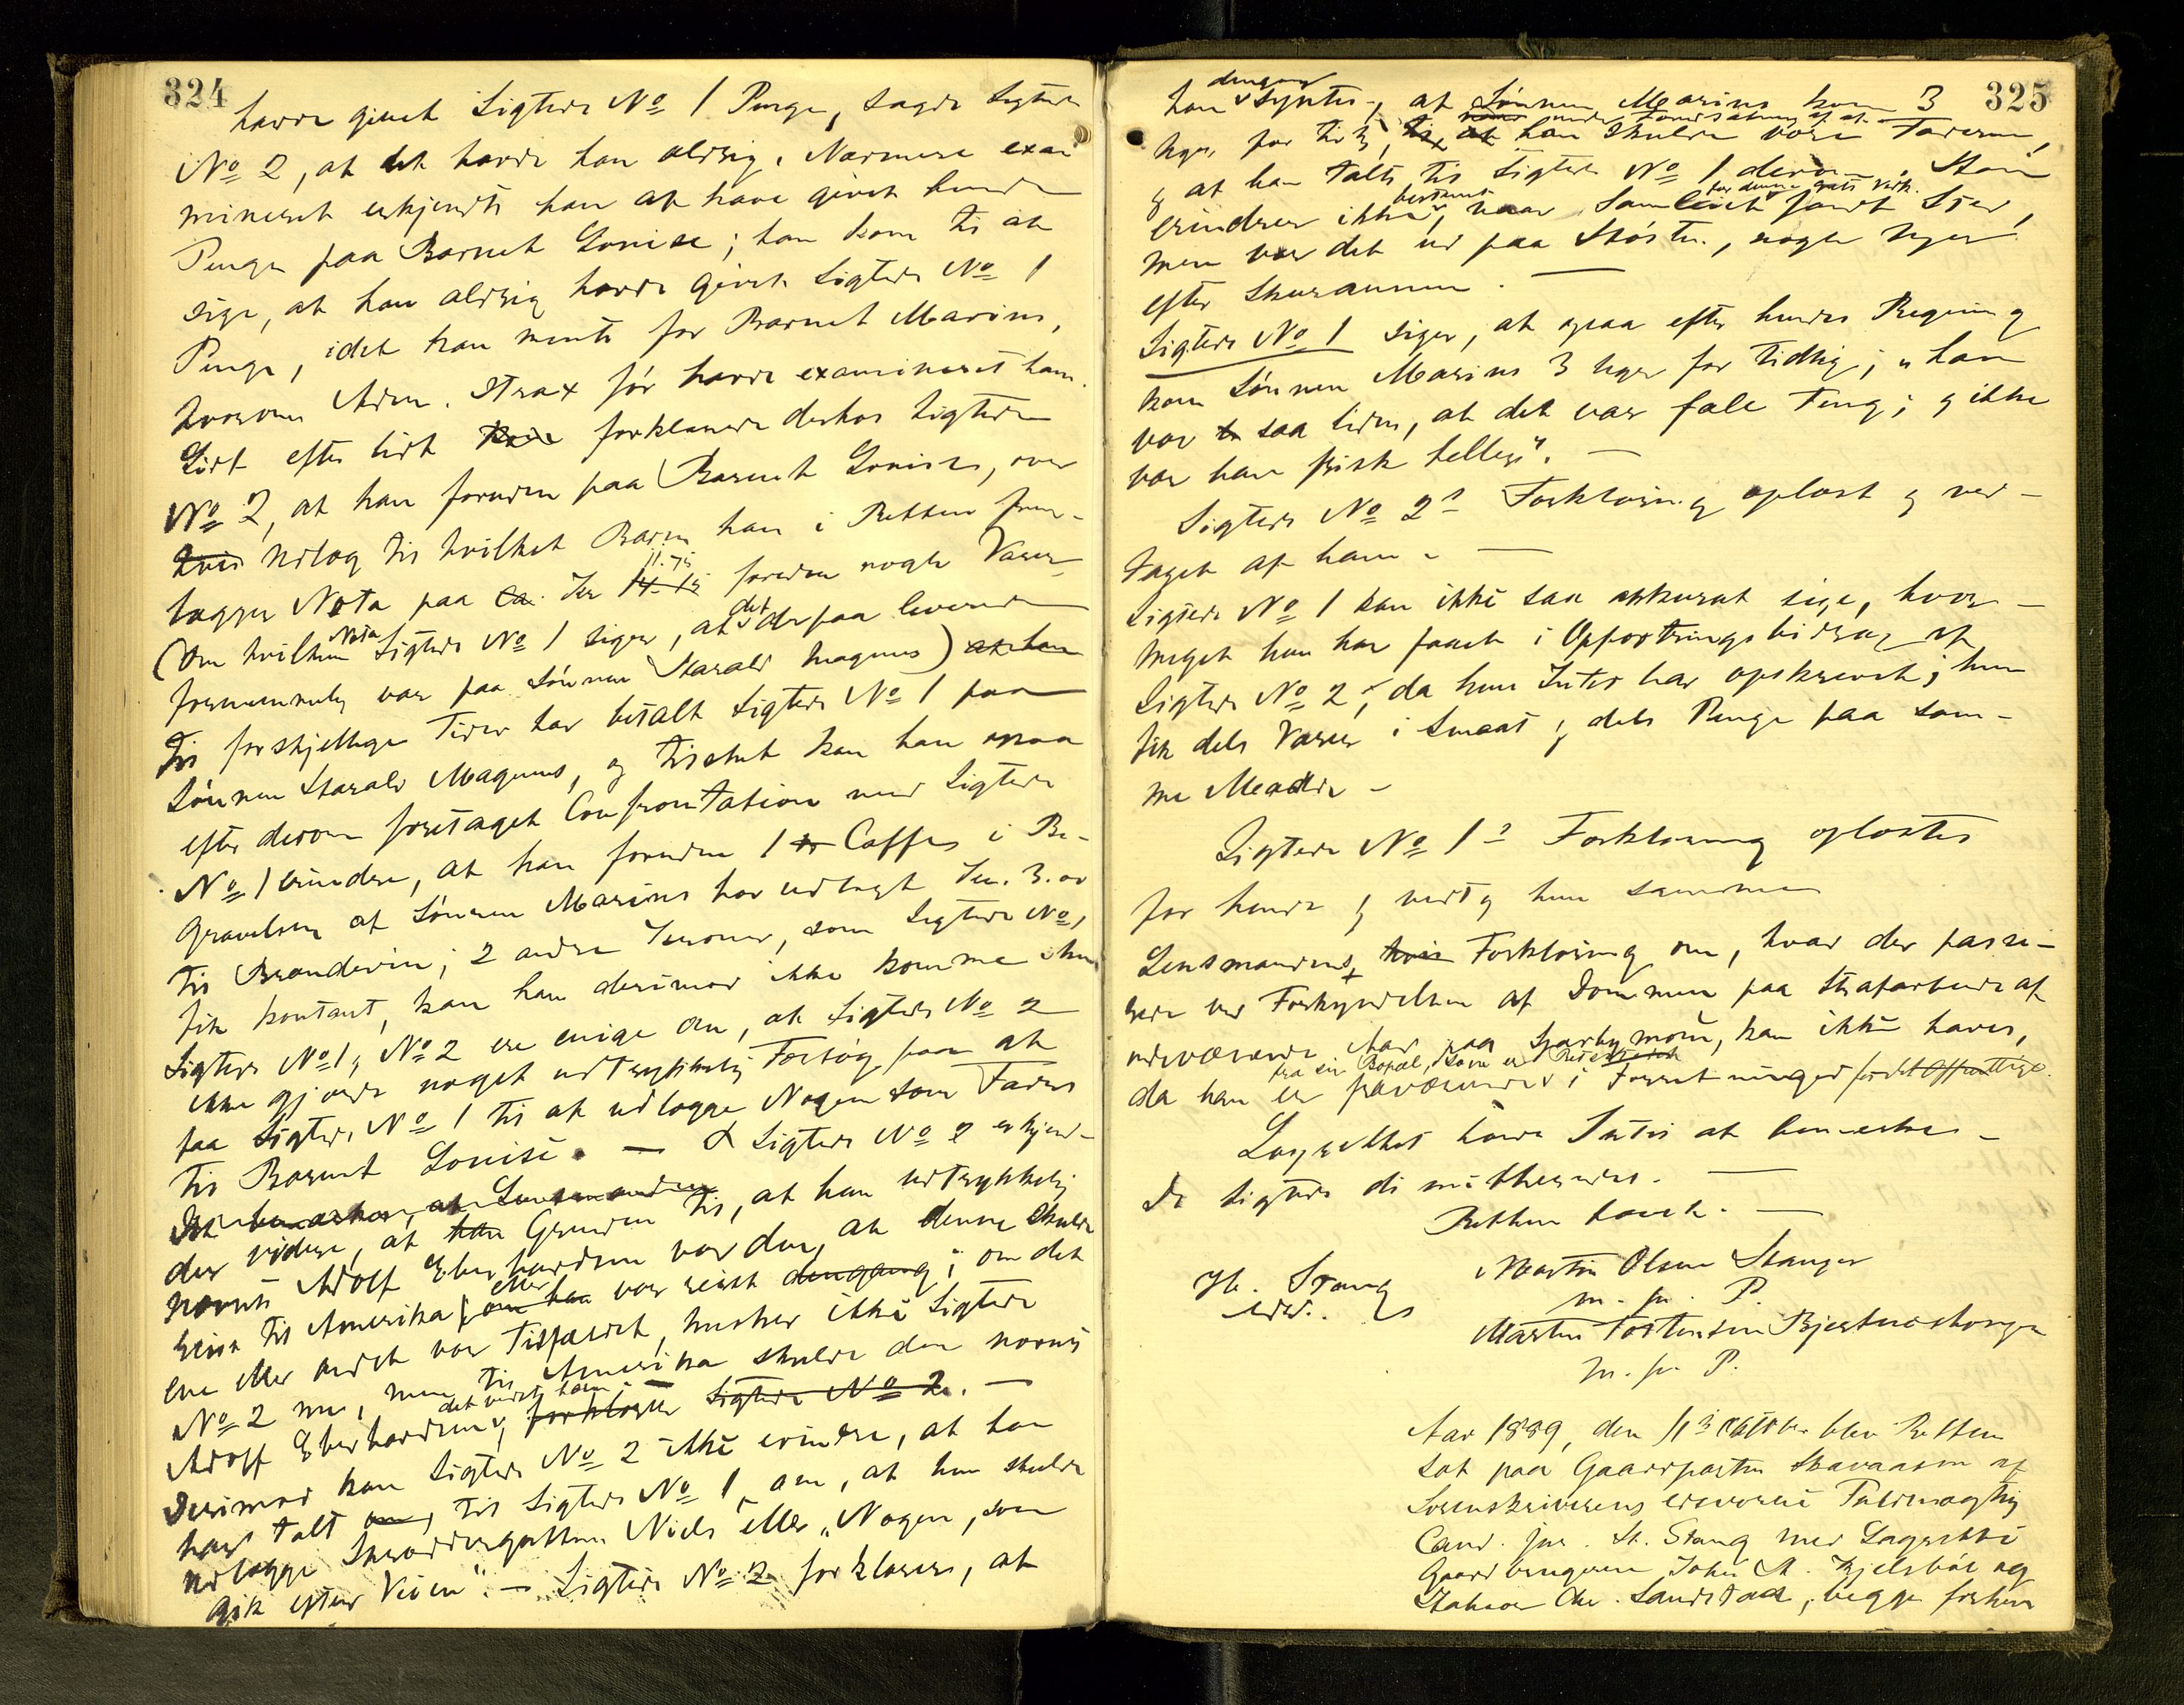 324
havde givet Sigtede No 1 Penge, sagde Sigtede
No 2, at det havde han aldrig. Nærmere exa-
mineret erkjendte han at have givet hende
Penge paa Barnet Lovise; han kom til at
sige, at han aldrig havde givet Sigtede No 1
Penge, idet han mente for Barnet Marius,
hvorom Adm. strax før havde examineret ham.
Lidt efter lidt forklarede derhos Sigtede
No 2, at han foruden paa Barnet Lovise, over
hvis Udlæg til hvilket Barn han i Retten frem-
lægger Nota paa ca. Kr 14.15 11.75 foruden nogle Varer
(om hvilken Nota Sigtede No 1 siger, at det derpaa leverede
formentlig var paa Sønnen Harald Magnus) at han
til forskjellige Tider har betalt Sigtede No 1 paa
Sønnen Harald Magnus, og tilslut kan han ogsaa
efter derom foretaget Confrontation med Sigtede
No 1 erindre, at han foruden 1 Caffe i Be-
gravelsen af Sønnen Marius har udlagt Kr. 3.00
til Brændevin; 2 andre Kroner, som Sigtede No 1
fik kontant, kan han derimod ikke komme ihu
Sigtede No 1 og No 2 ere enige om, at Sigtede No 2
ikke gjorde noget udtrykkelig Forsøg paa at
faa Sigtede No 1 til at udlægge Nogen som Fader
til Barnet Lovise. — Sigtede No 2 erkjen-
bemærkes, at Lensmanden
der videre, at han Grunden til, at han udtrykkelig
nævnte Adolf Eberhardsen var den, at denne skulde
reise til Amerika eller om han var reist dengang; om det
ene eller andet var Tilfældet, husker ikke Sigtede
No 2 nu, men til Amerika skulde den nævnte
Adolf Eberhardsen, det vidste han forklarer Sigtede No 2. —
Derimod kan Sigtede No 2 ikke erindre, at han
har talt om, til Sigtede No 1 om, at hun skulde
udlægge Skræddergutten Niels eller „Nogen, som
gik efter Veien". — Sigtede No 2 forklarer, at
325
han dengang syntes, at Sønnen Marius kom 3
Uger for tidlig, at han skulde være Faderen,
og at han talte til Sigtede No 1 derom. Han
erindrer ikke bestemt, naar Samleiet fandt Sted,
men var det ud paa Høsten, nogle Uger
efter Skuraannen. —
Sigtede No 1 siger, at ogsaa efter hendes Regning
kom Sønnen Marius 3 Uger for tidlig; „han
var saa liden, at det var fale Ting; og ikke
var han frisk heller". —
Sigtede No 2s Forklaring oplæst og ved-
taget af ham. —
Sigtede No 1 kan ikke saa akkurat sige, hvor-
meget hun har faaet i Opfostringsbidrag af
Sigtede No 2, da hun Intet har opskrevet; hun
fik dels Varer i Smaat og dels Penge paa sam-
me Maade —
Sigtede No 1s Forklaring oplæstes
for hende og vedtog hun samme
Lensmandens Forklaring om, hvad der passe-
rede ved Forkyndelsen af Dommen paa Strafarbeide af
, kan ikke haves,
da han er fraværende fra sin Bopæl, i Forretninger for det Offentlige.
Lagrettet havde Intet at bemærke —
De Sigtede dimitteredes. —
Retten hævet. —
H. Stang
edsv.
Martin Olsen Stanger
m. p. P.
Martin Torstensen Bjertnæshagen
m. p. P.
Aar 1889, den 11te Oktober blev Retten
sat paa Gaardparten af
Sorenskriverens edsvorne Fuldmægtig
Cand. jur. H. Stang med Lagrette
Gaardbrugerne John A. Kjelsbøl og
Chr. Landstad, begge forhen